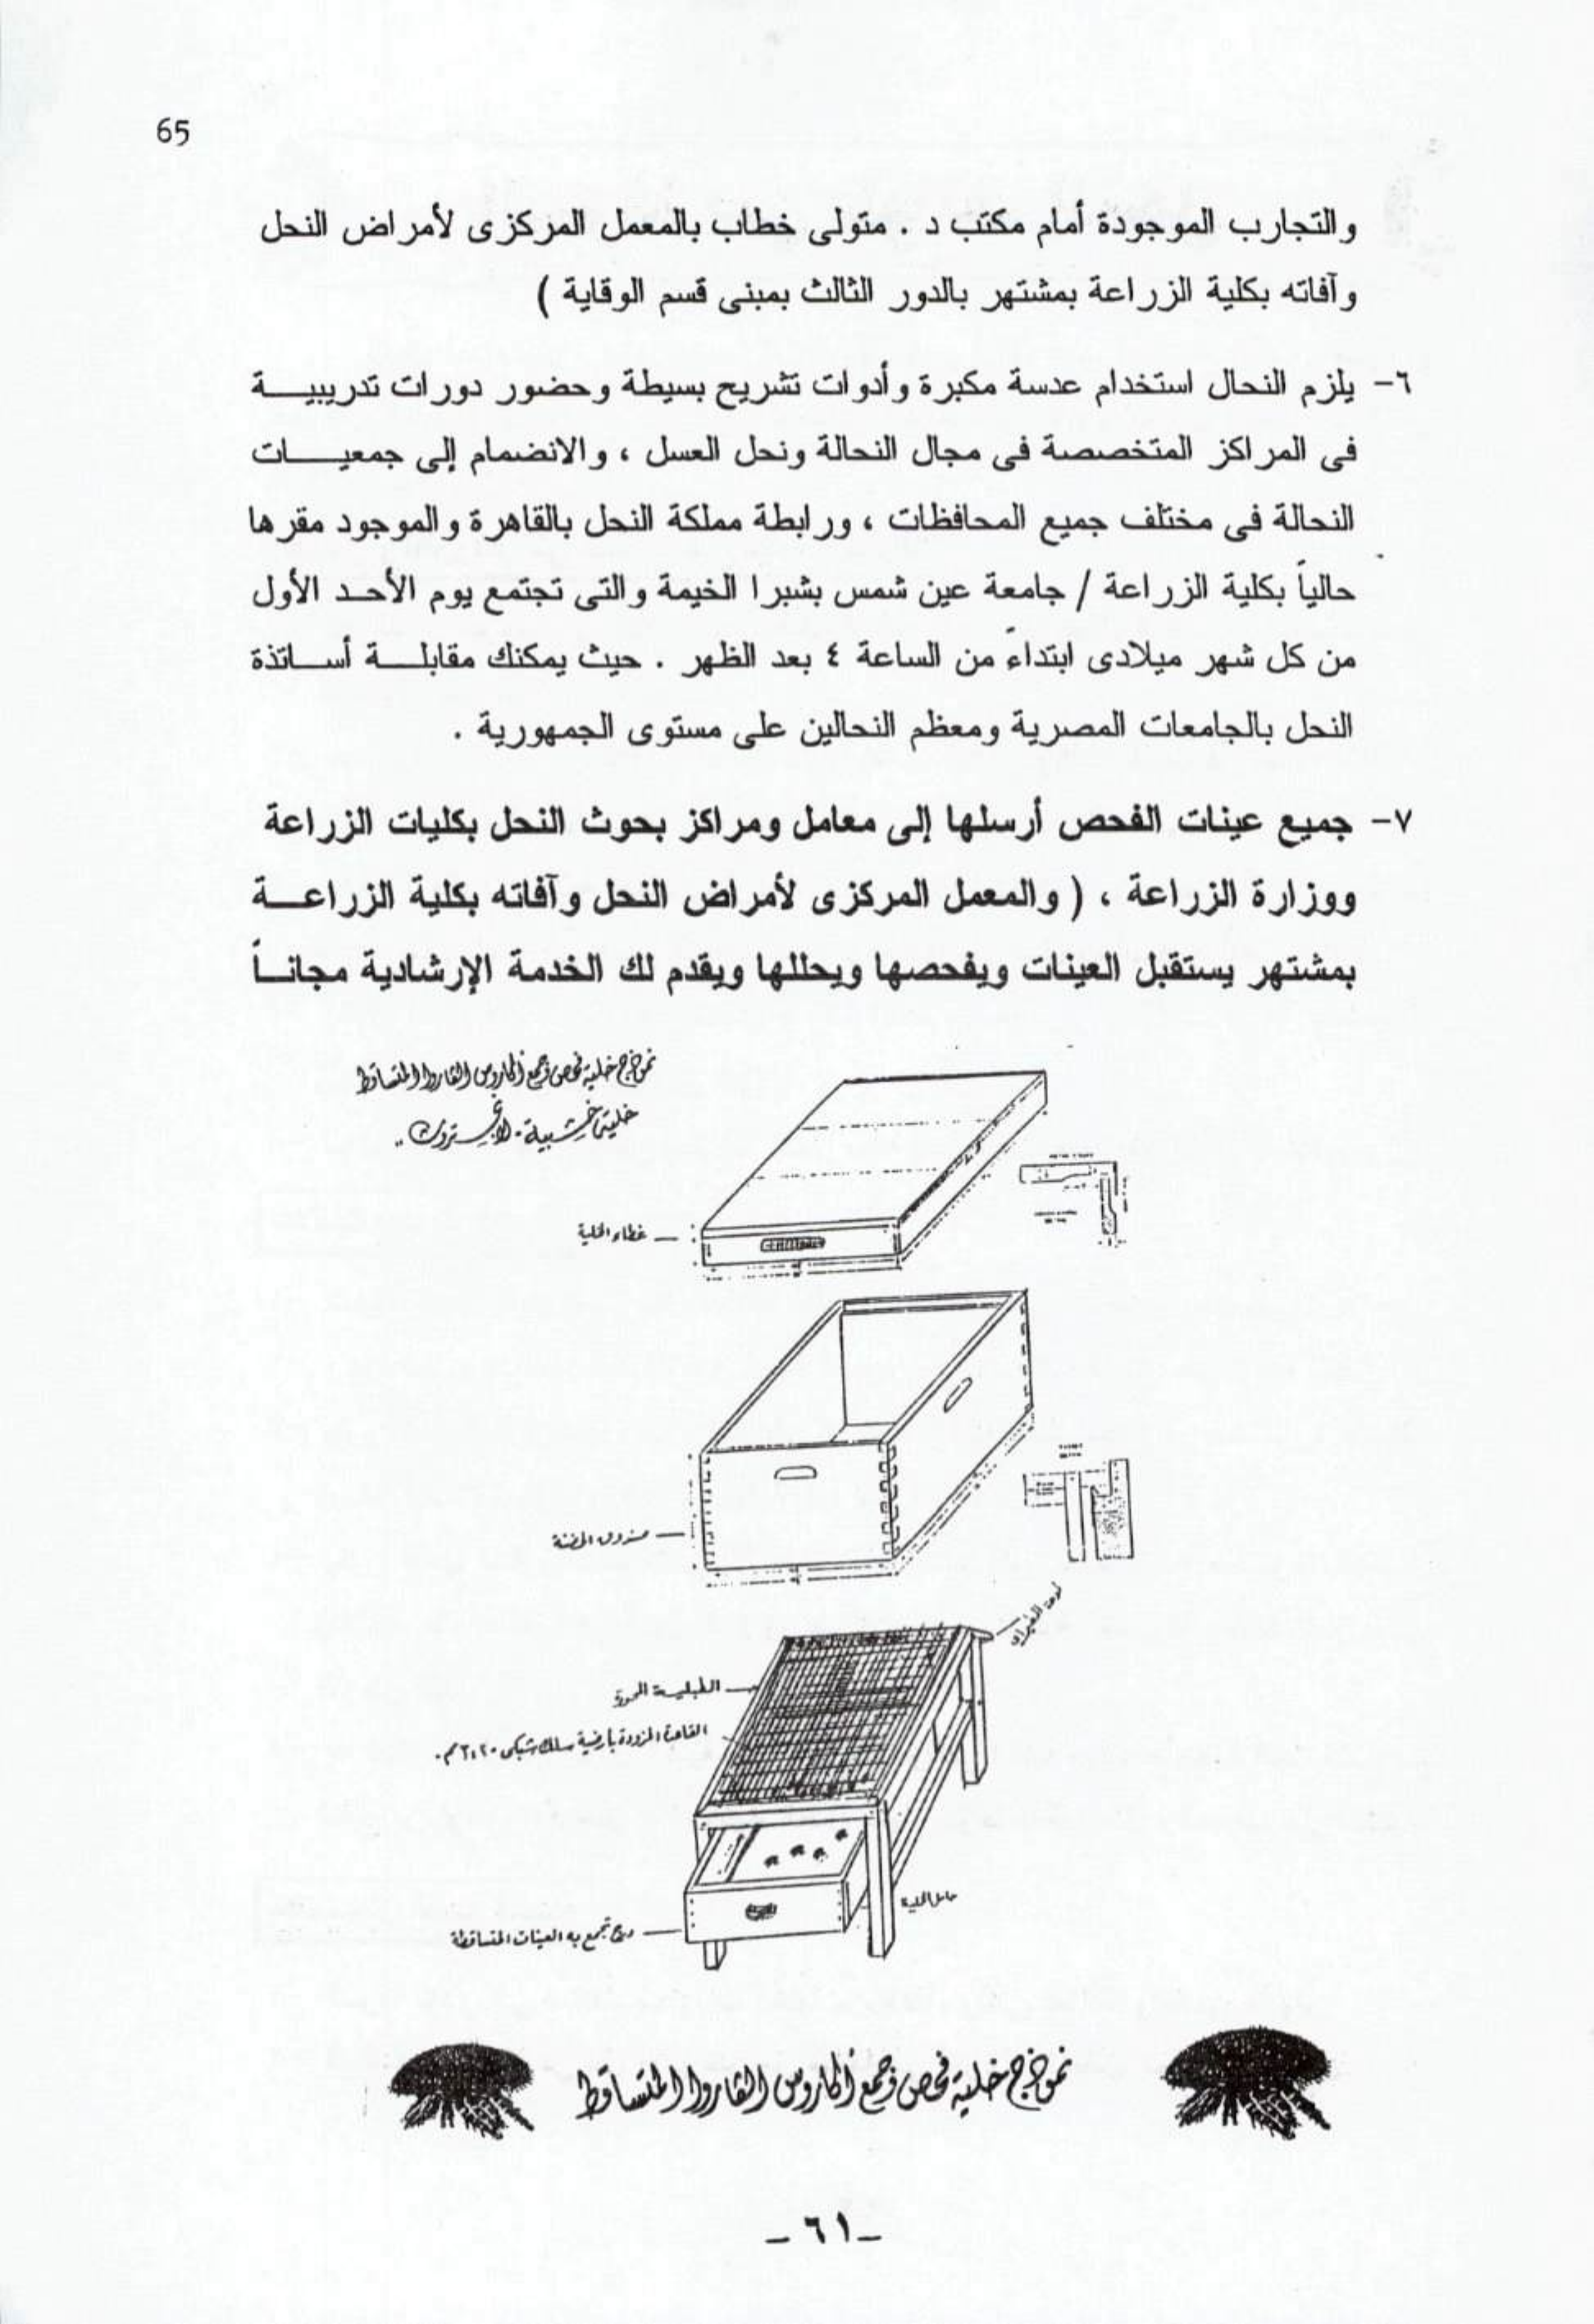 65
والتجارب الموجودة أمام مكتب د . متولى خطاب بالمعمل المركزى لأمراض النحل
وآفاته بكلية الزراعة بمشتهر بالدور الثالث بمبنى قسم الوقاية )
٦- يلزم النحال استخدام عدسة مكبرة وأدوات تشريح بسيطة وحضور دورات تدريبيــة
فى المراكز المتخصصة فى مجال النحالة ونحل العسل ، والانضمام إلى جمعيــات
النحالة فى مختلف جميع المحافظات ، ورابطة مملكة النحل بالقاهرة والموجود مقرها
حالياً بكلية الزراعة / جامعة عين شمس بشبرا الخيمة والتى تجتمع يوم الأحـد الأول
من كل شهر ميلادى ابتداءً من الساعة ٤ بعد الظهر . حيث يمكنك مقابلــة أســاتذة
النحل بالجامعات المصرية ومعظم النحالين على مستوى الجمهورية .
٧- جميع عينات الفحص أرسلها إلى معامل ومراكز بحوث النحل بكليات الزراعة
ووزارة الزراعة ، ( والمعمل المركزى لأمراض النحل وآفاته بكلية الزراعــة
بمشتهر يستقبل العينات ويفحصها ويحللها ويقدم لك الخدمة الإرشادية مجانــاً
نموذج خلية فحص وجمع أكاروس الفاروا المتساقط
خلية خشبية - لانجستروث
غطاء الخلية
صندوق الحضنة
لوحة الطيران
الطبلية المحورة
القاعدة المزودة بأرضية سلك شبكى
حامل الخلية
درج تجمع به العينات المتساقطة
نموذج خلية فحص وجمع أكاروس الفاروا المتساقط
- ٦١ -